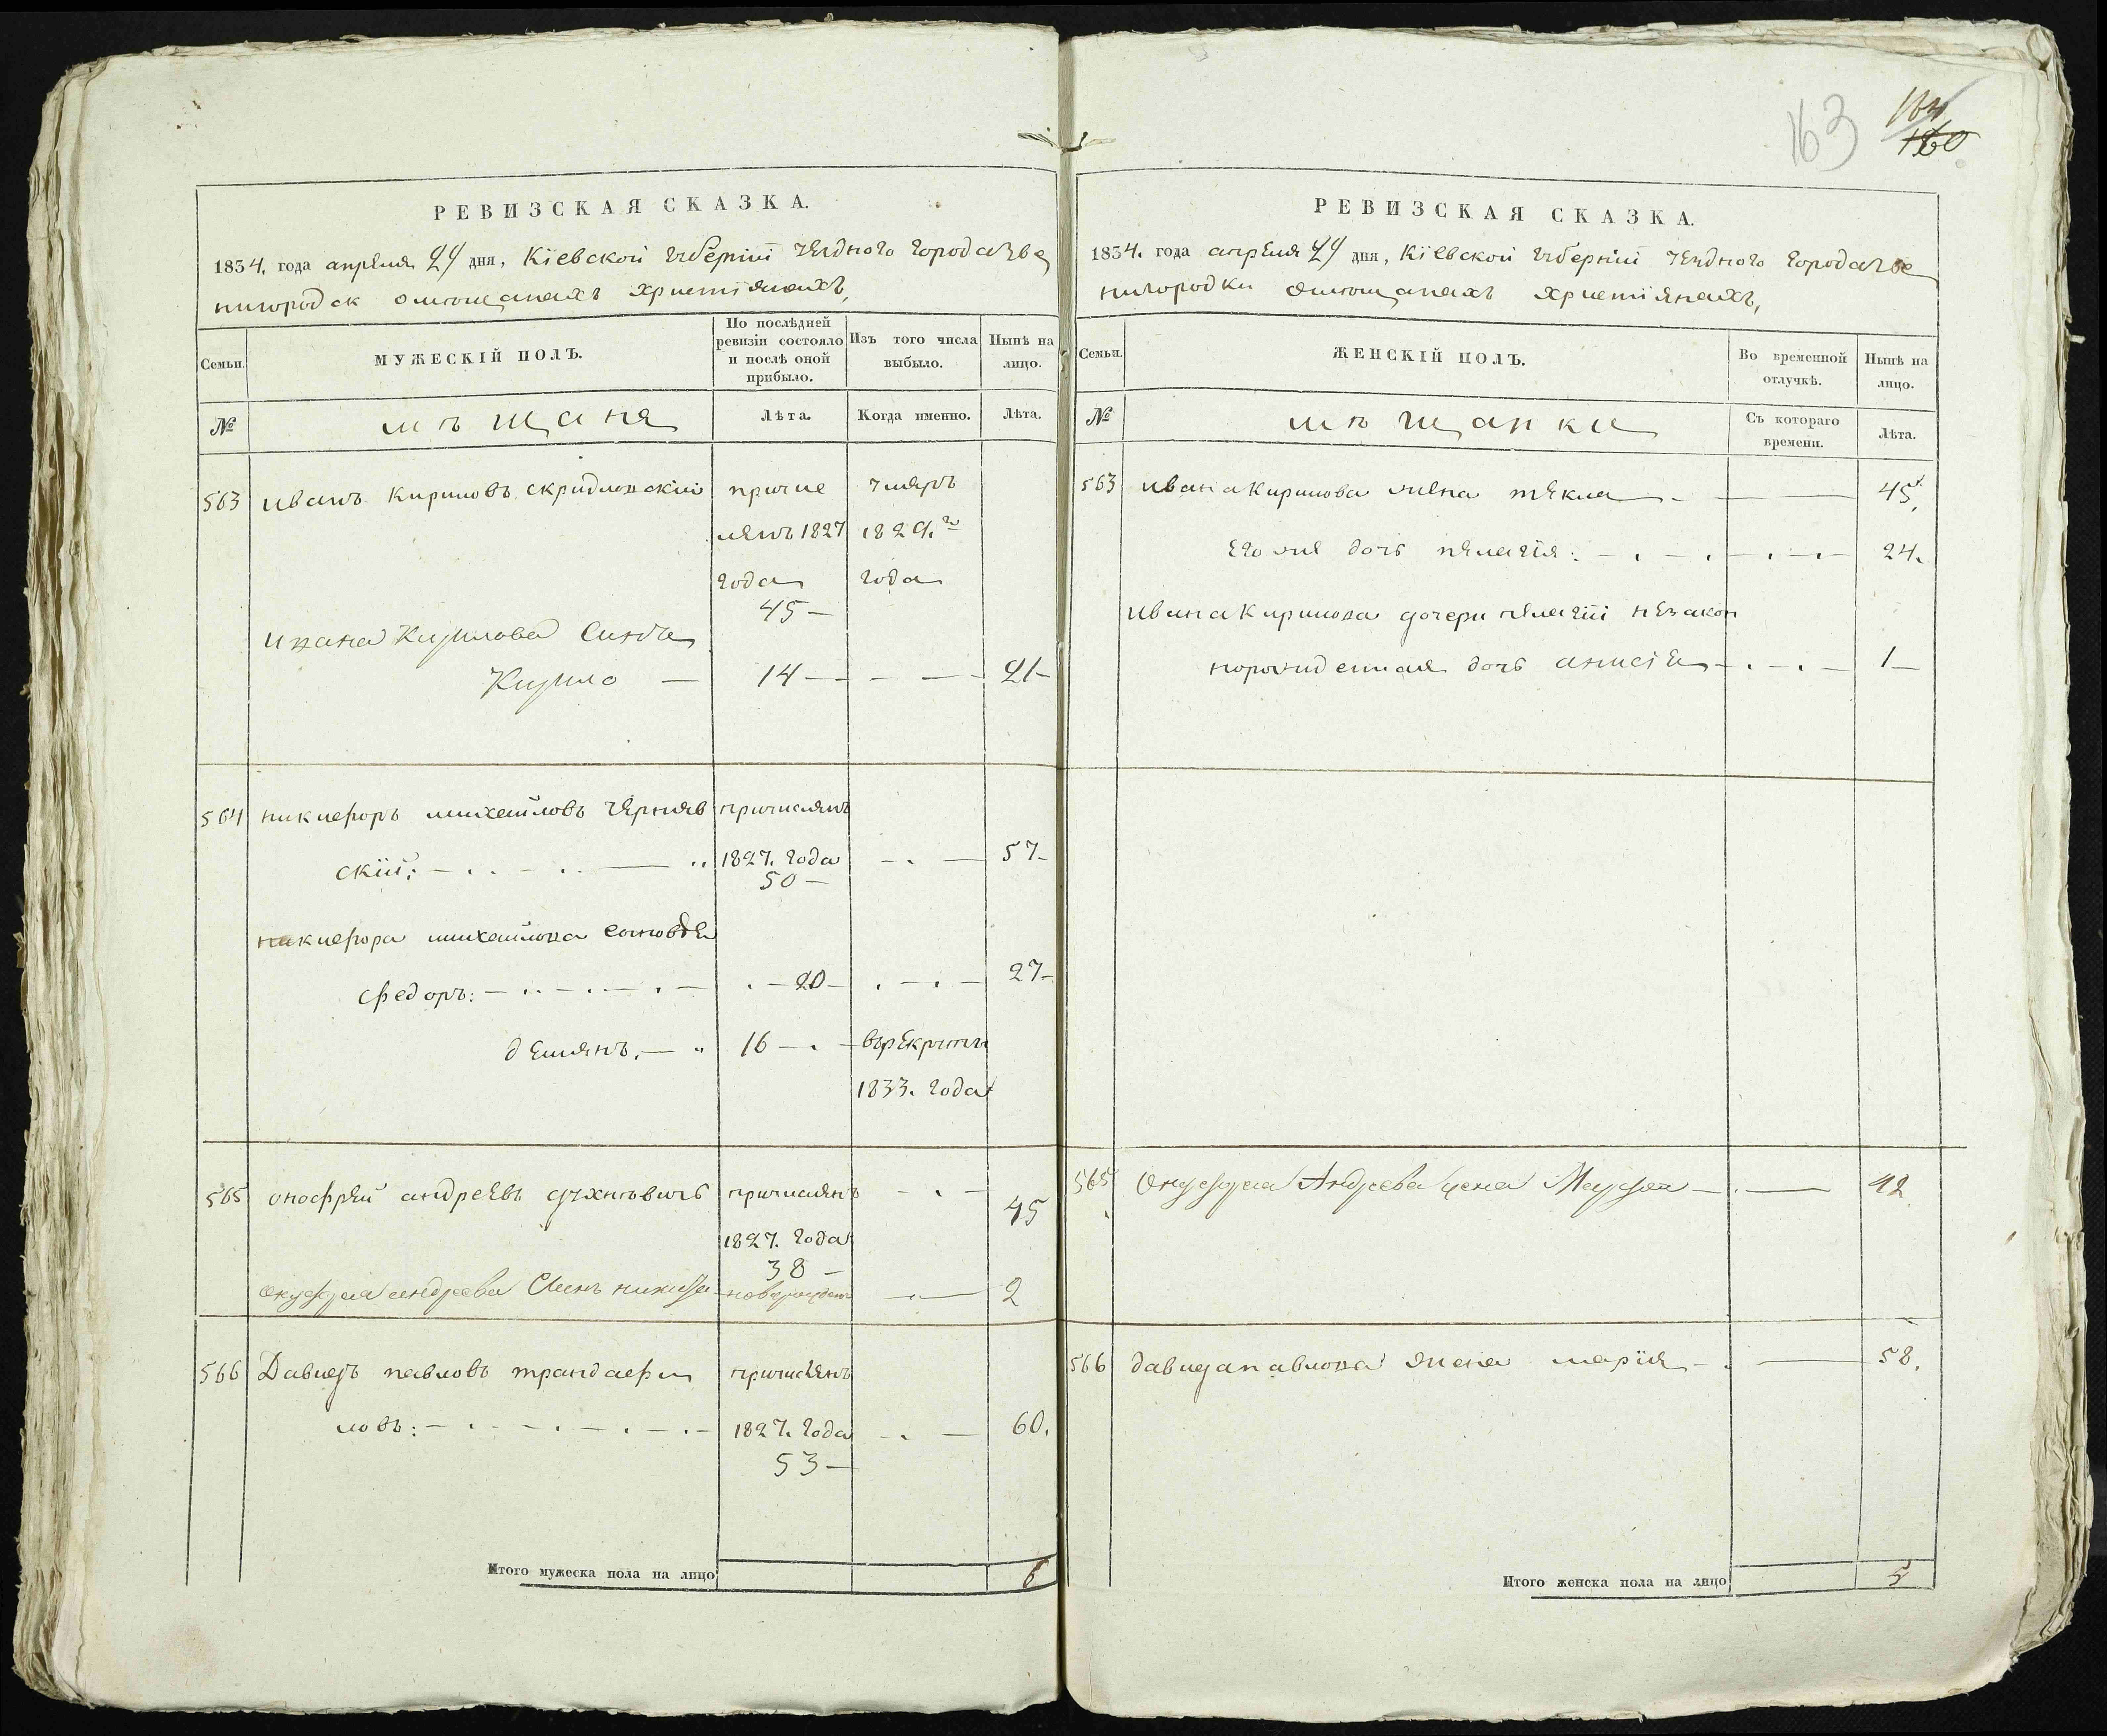 163
160
РЕВИЗСКАЯ СКАЗКА.
1834. года апреля 24 дня, Кіевской губерніи уездного города Зве
нигородск омещанахъ христіянахъ,
Семьи.
МУЖЕСКІЙ ПОЛЪ.
По послѣдней ревизіи состояло и послѣ оной прибыло.
Изъ того числа выбыло.
Нынѣ на лицо.
№
мѣщаня
Лѣта.
Когда именно.
Лѣта.
563 иванъ Кириловъ скридловскій причис умеръ
лянъ 1827 1829. го
года года
45 —
ивана Кирилова Синъ
Кирило — 14 — — — 21 —
564 никифоръ михайловъ черняв причислянъ
скій: 1827. года 57 —
50 —
никифора михайлова сыновья
федоръ: — 20 — 27 —
демянъ. — 16 — врекруты
1833. года
565 онофрей андреевъ причислянъ 45
1827. года
38 —
онуфрея андреева Синъ никита новорожден 2
566 Давидъ павловъ трандафи причислянъ
ловъ: — 1827. года 60.
53 —
Итого мужеска пола на лицо 6
РЕВИЗСКАЯ СКАЗКА.
1834. года апреля 24 дня, Кіевской губерніи уездного города Зве
нигородки омещанахъ христіянахъ,
Семьи.
ЖЕНСКІЙ ПОЛЪ.
Во временной отлучкѣ.
Нынѣ на лицо.
№
мѣщанки
Съ котораго времени.
Лѣта.
563 ивана Кирилова жена текла — 45.
его же дочь пелагія: — 24.
ивана Кирилова дочери пелагіи незакон
норожденная дочь анисія — 1 —
565 Онуфрея Андреева жена Марфа — 42
566 давида павлова жена марія — 58.
Итого женска пола на лицо 5